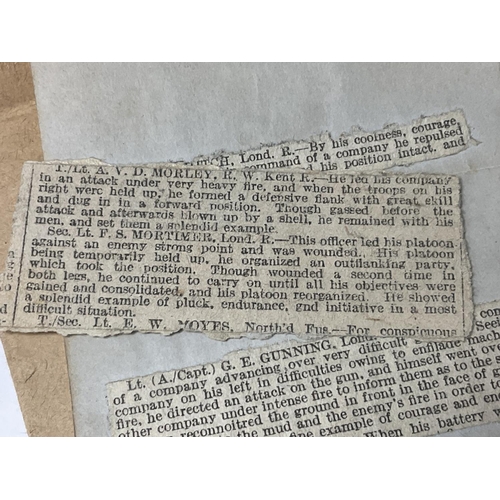 RCH, Lond. R.—By his coolness, courage,
command of a company he repulsed
his position intact, and
T./Lt. A. V. D. MORLEY, R. W. Kent R.—He led his company
in an attack under very heavy fire, and when the troops on his
right were held up, he formed a defensive flank with great skill
and dug in in a forward position. Though gassed before the
attack and afterwards blown up by a shell, he remained with his
men, and set them a splendid example.
Sec. Lt. F. S. MORTIMER, Lond. R.—This officer led his platoon
against an enemy strong point and was wounded. His platoon
being temporarily held up, he organized an outflanking party,
which took the position. Though wounded a second time in
both legs, he continued to carry on until all his objectives were
gained and consolidated, and his platoon reorganized. He showed
a splendid example of pluck, endurance, gnd initiative in a most
difficult situation.
T./Sec. Lt. E. W. NOYES, North'd Fus.—For conspicuous
Lt. (A./Capt.) G. E. GUNNING, Lond.
of a company advancing over very difficult
company on his left in difficulties owing to enfilade machine
fire, he directed an attack on the gun, and himself went over
other company under intense fire to inform them as to the
reconnoitred the ground in front in the face of
the mud and the enemy's fire in order to
fine example of courage and
When his battery